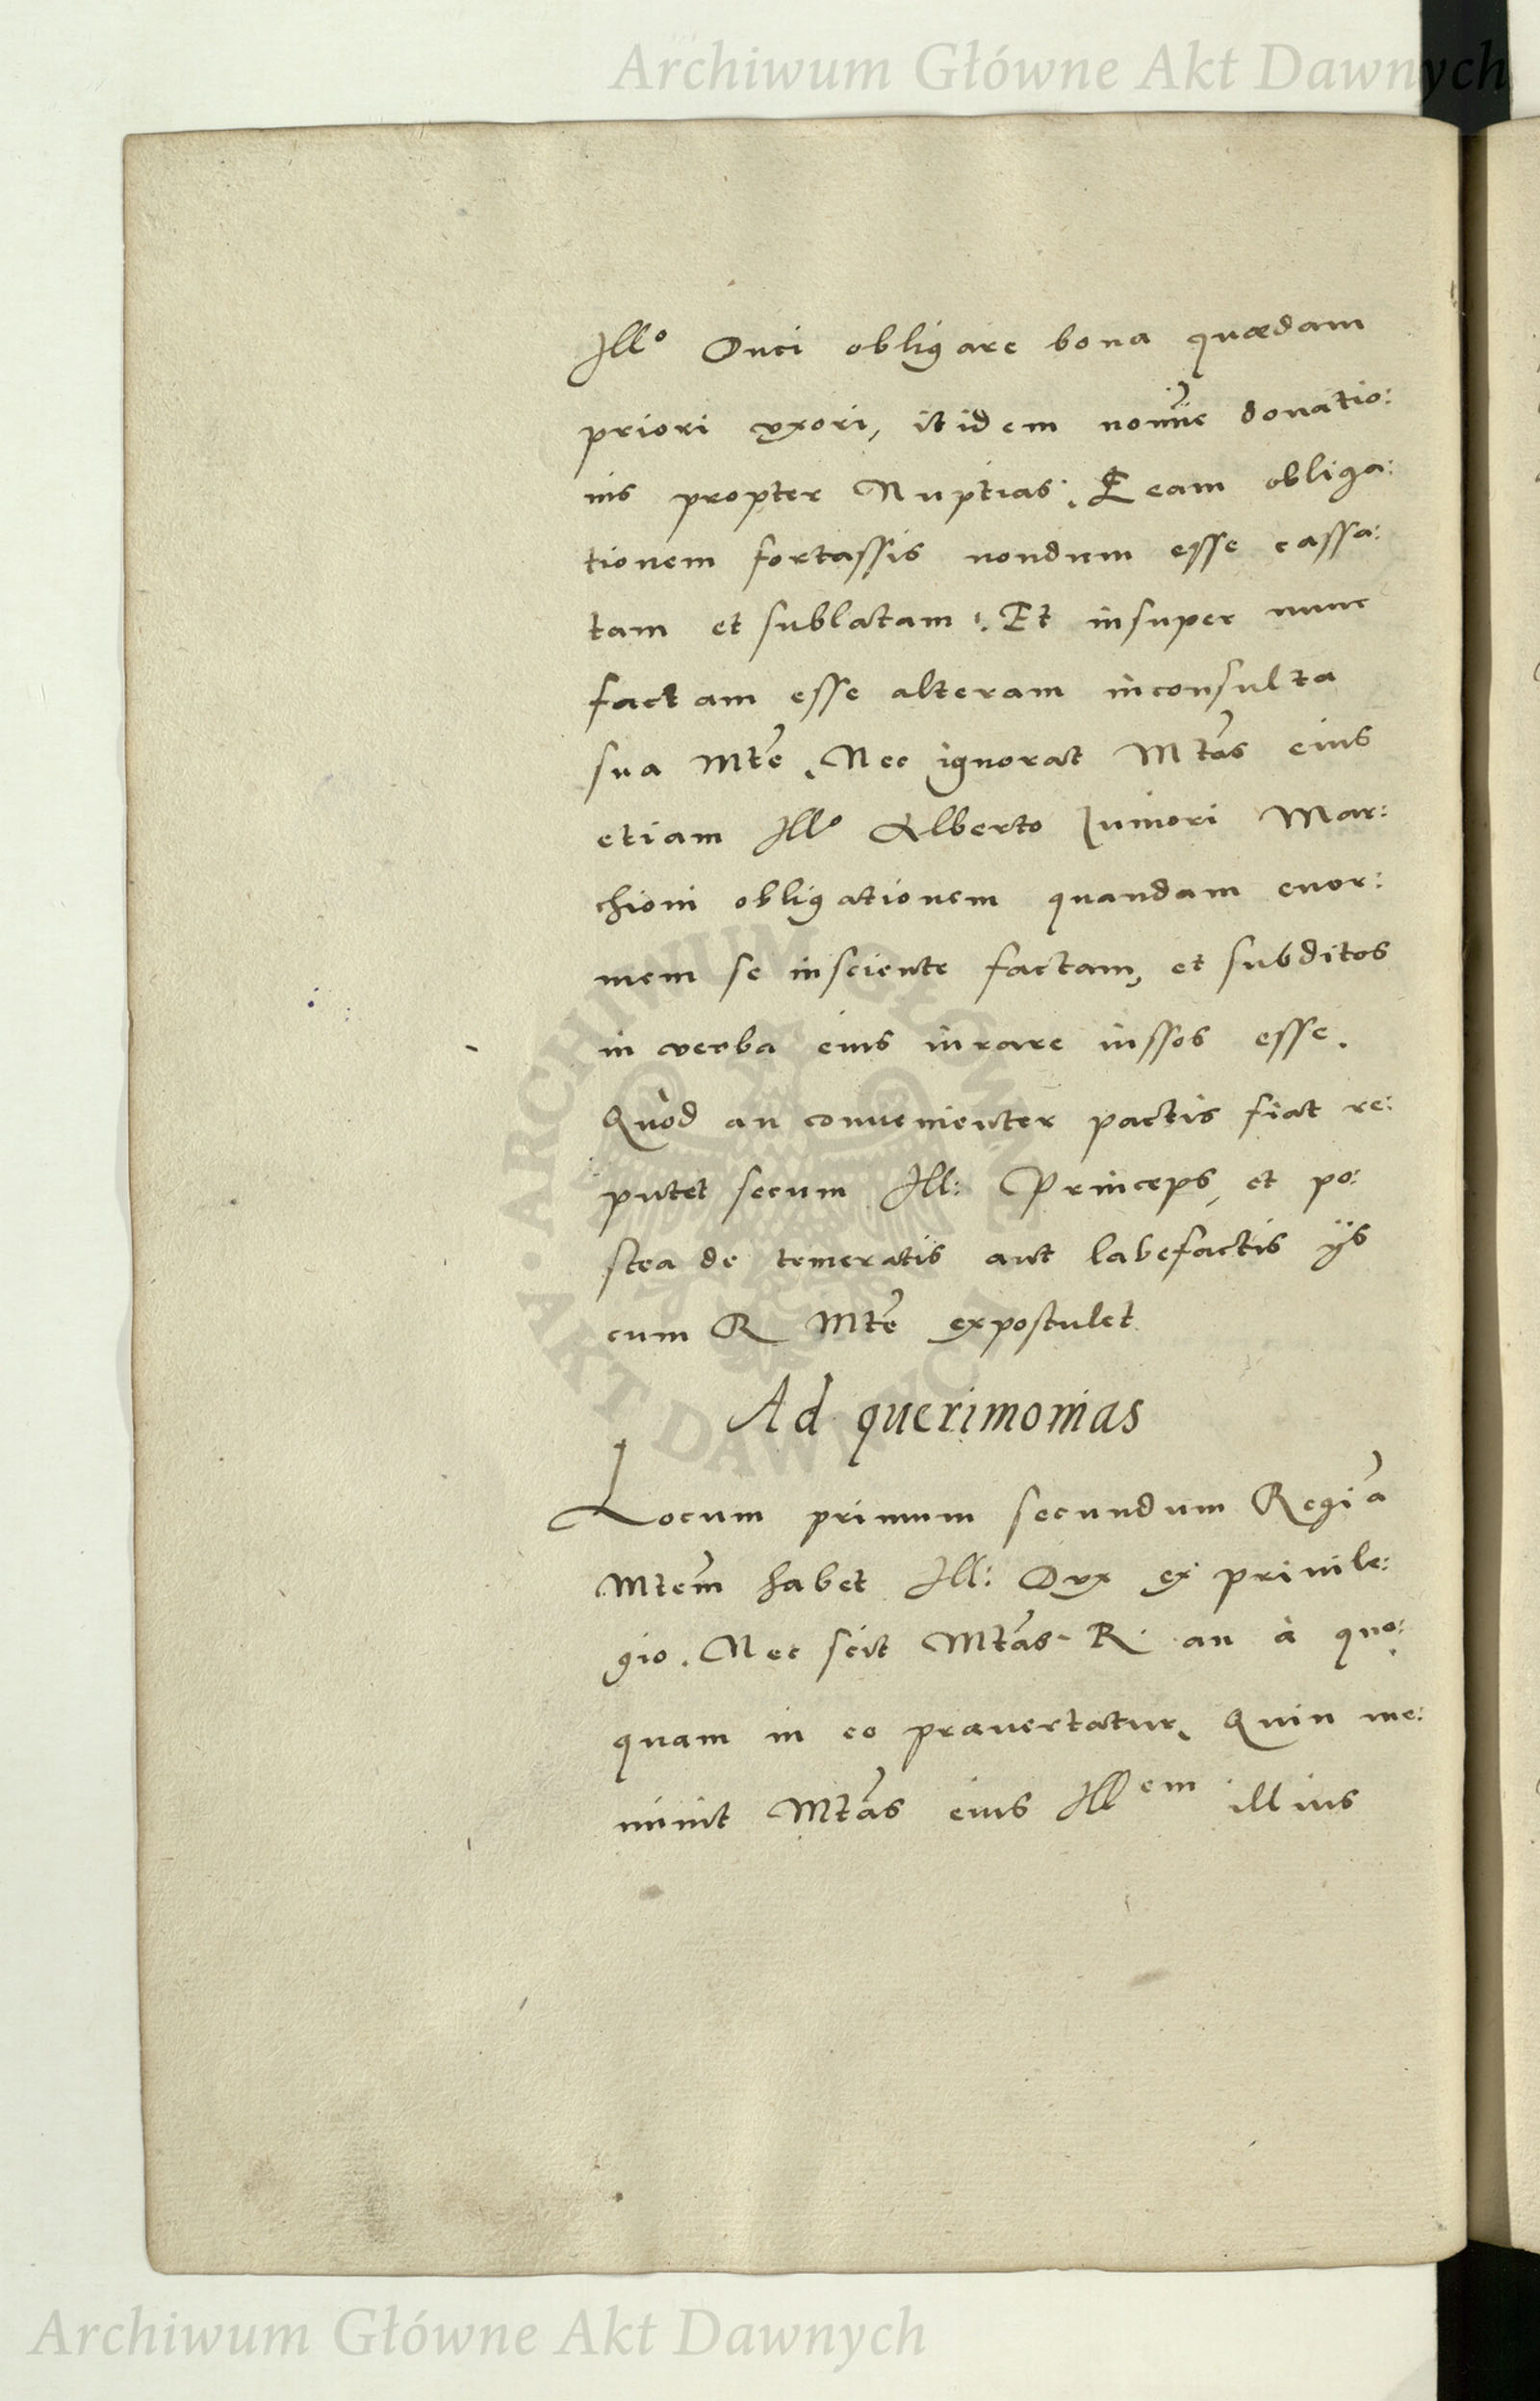 Archiwum Główne Akt Dawnych
Illo Duci obligare bona quædam
priori vxori, itidem nomīe donatio:
nis propter Nuptias. Eam obliga:
tionem fortassis nondum esse cassa:
tam et sublatam. Et insuper nunc
factam esse alteram inconsulta
sua Mte. Nec ignorat Mtas eius
etiam Illo Alberto Juniori Mar:
chioni obligationem quandam enor:
mem se insciente factam, et subditos
in verba eius iurare iussos esse.
Quòd an conuenienter pactis fiat re:
putet secum Ill: Princeps, et po:
stea de temeratis aut labefactis ijs
cum R Mte expostulet
Ad querimonias
Locum primum secundum Regiā
Mtem habet Ill: Dux ex priuile:
gio. Nec scit Mtas R. an à quo:
quam in eo præuertatur, Quin me:
minit Mtas eius Illem illius
ARCHIWUM GŁÓWNE
AKT DAWNYCH
Archiwum Główne Akt Dawnych